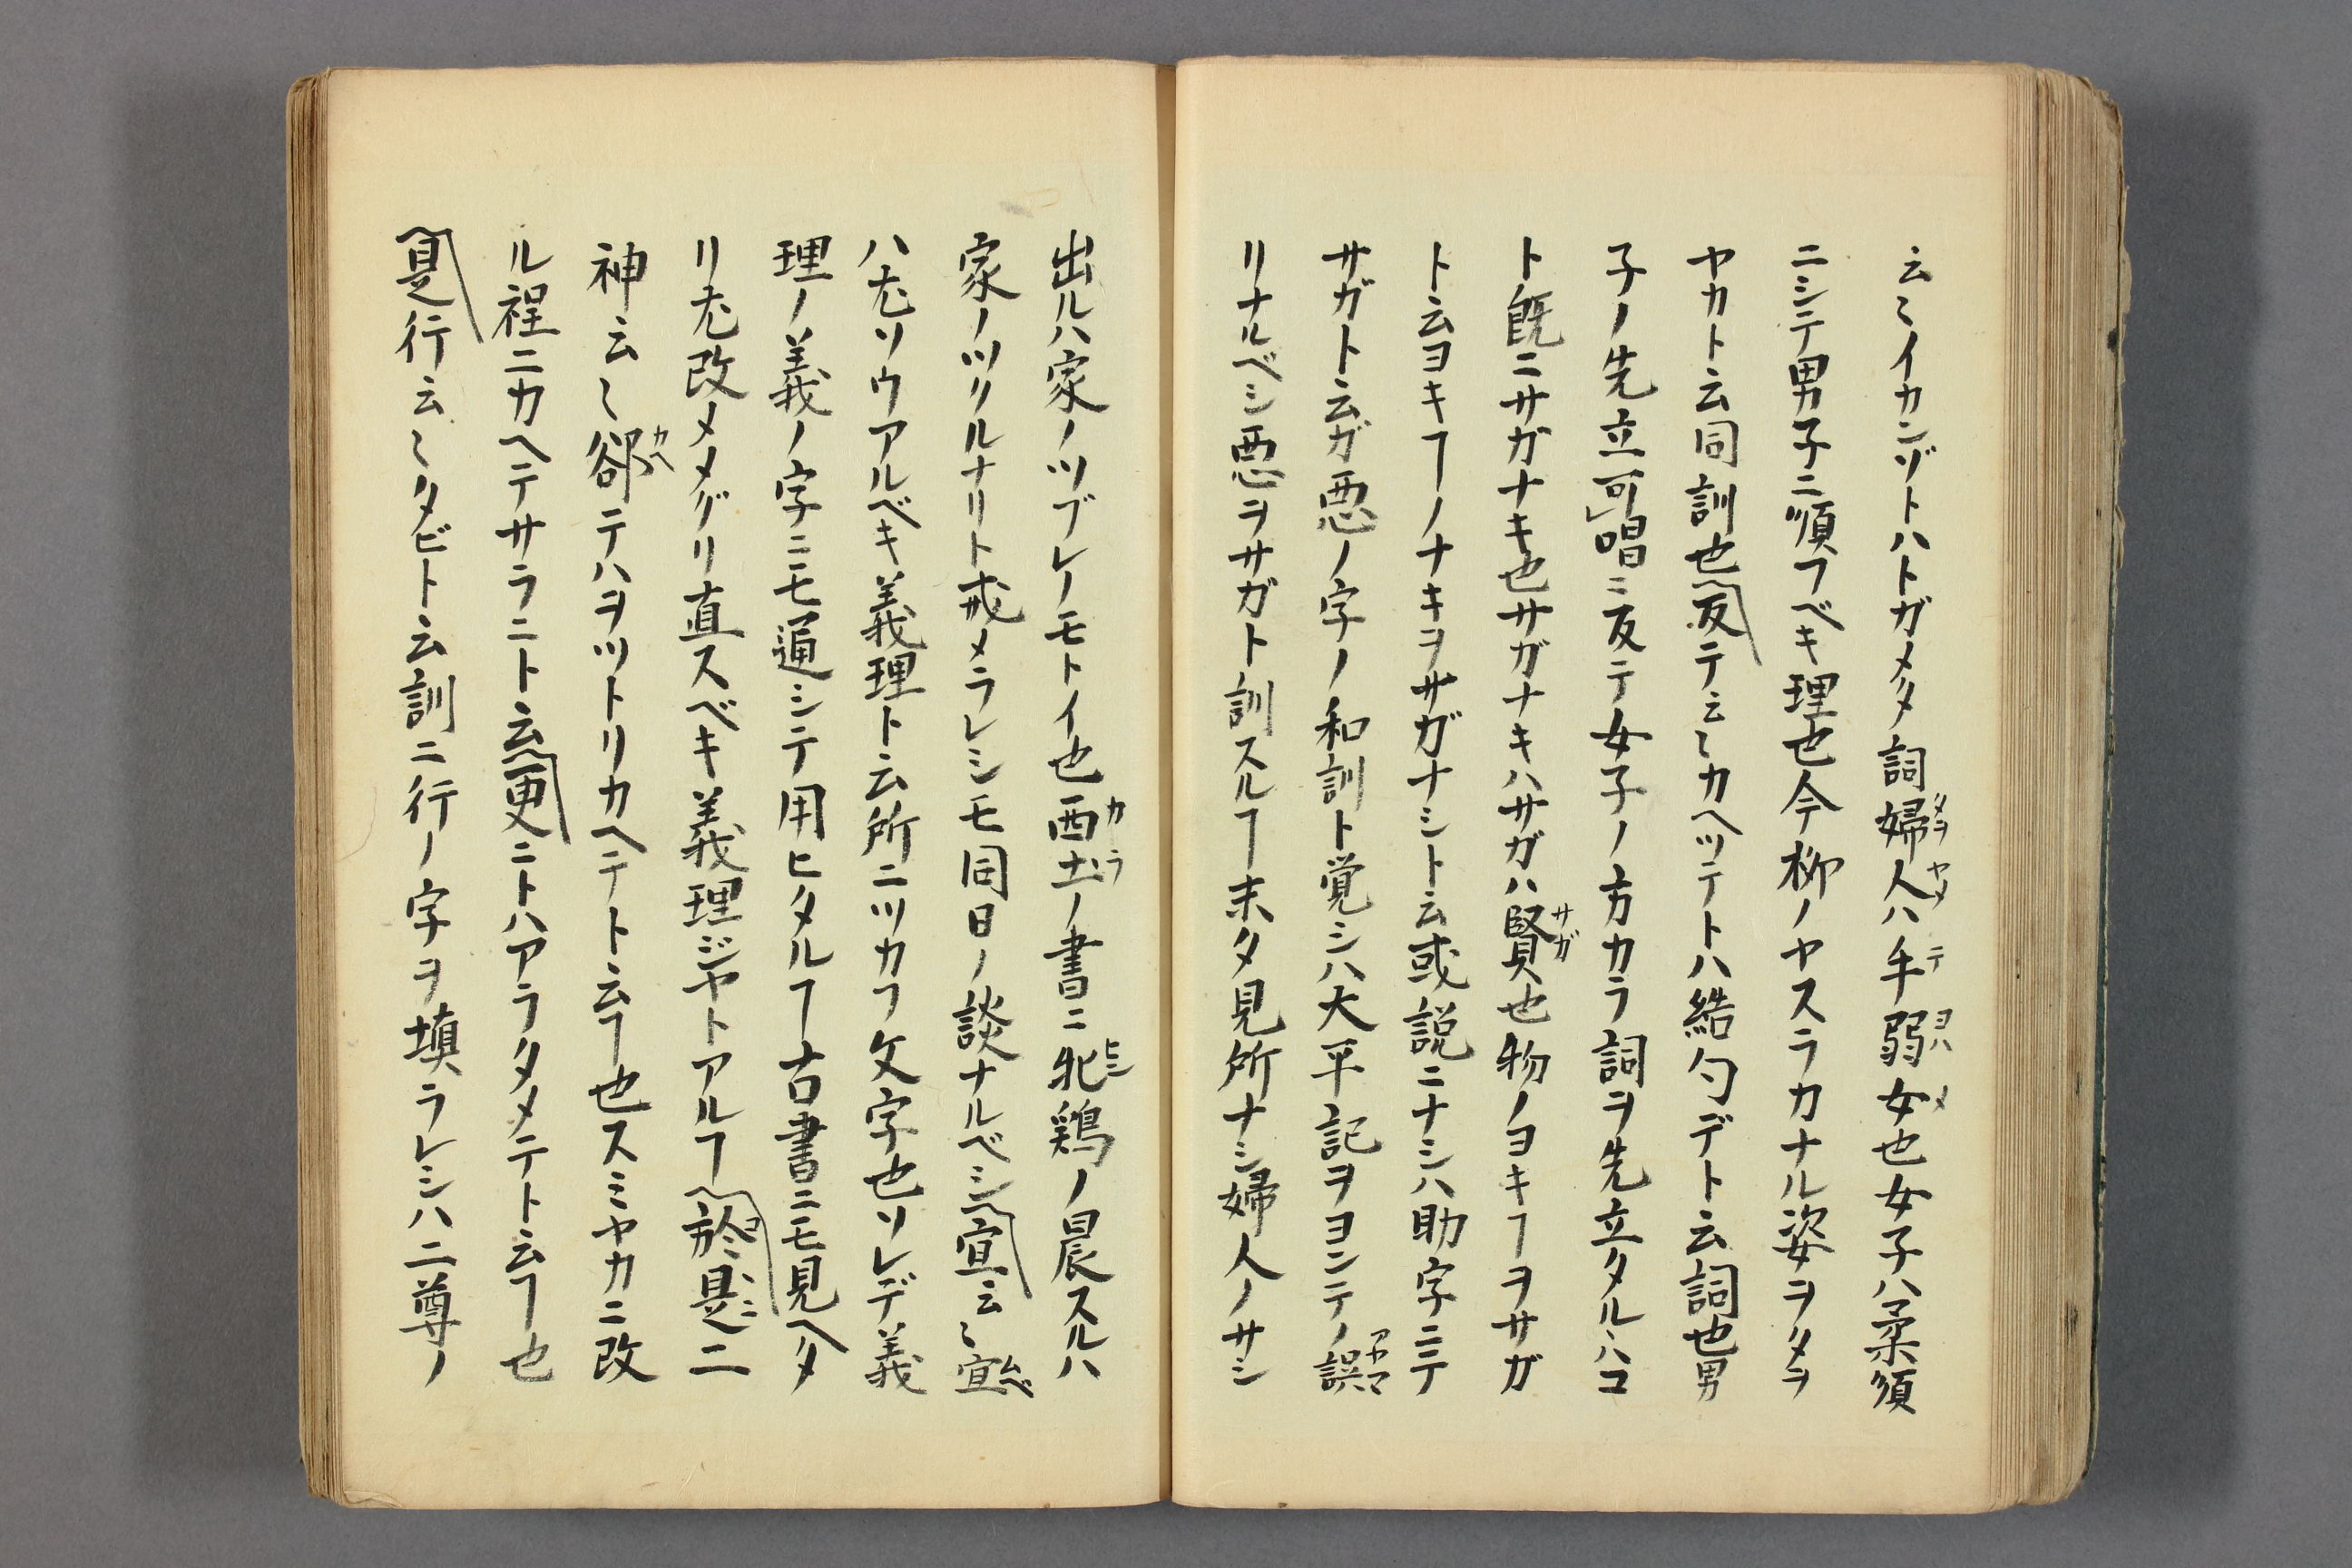 云〻イカンゾトハトガメタ詞婦人ハ手弱女也女子ハ柔須
ニシテ男子ニ順フベキ理也今柳ノヤスラカナル姿ヲタヲ
ヤカト云同訓也〽反テ云〻カヘツテトハ結句デト云詞也男
子ノ先立可唱ニ反テ女子ノ方カラ詞ヲ先立タルハコ
ト既ニサガナキ也サガナキハサガハ賢也物ノヨキヿヲサガ
ト云ヨキヿノナキヲサガナシト云或説ニナシハ助字ニテ
サガト云ガ悪ノ字ノ和訓ト覚シハ大平記ヲヨンテノ誤
リナルベシ悪ヲサガト訓スルヿ末タ見所ナシ婦人ノサシ
出ルハ家ノツブレノモトイ也西土ノ書ニ牝鶏ノ晨スルハ
家ノツクルナリト戒メラレシモ同日ノ談ナルベシ〽宜云〻宜
ハ尤ソウアルベキ義理ト云所ニツカフ文字也ソレデ義
理ノ義ノ字ニモ通シテ用ヒタルヿ古書ニモ見ヘタ
リ尤改メメグリ直スベキ義理ジャトアルヿ〽於是二
神云〻郤テハヲツトリカヘテト云ヿ也スミヤカニ改
ル程ニカヘテサラニト云〽更ニトハアラタメテト云ヿ也
〽是行云〻タビト云訓ニ行ノ字ヲ填ラレシハ二尊ノ